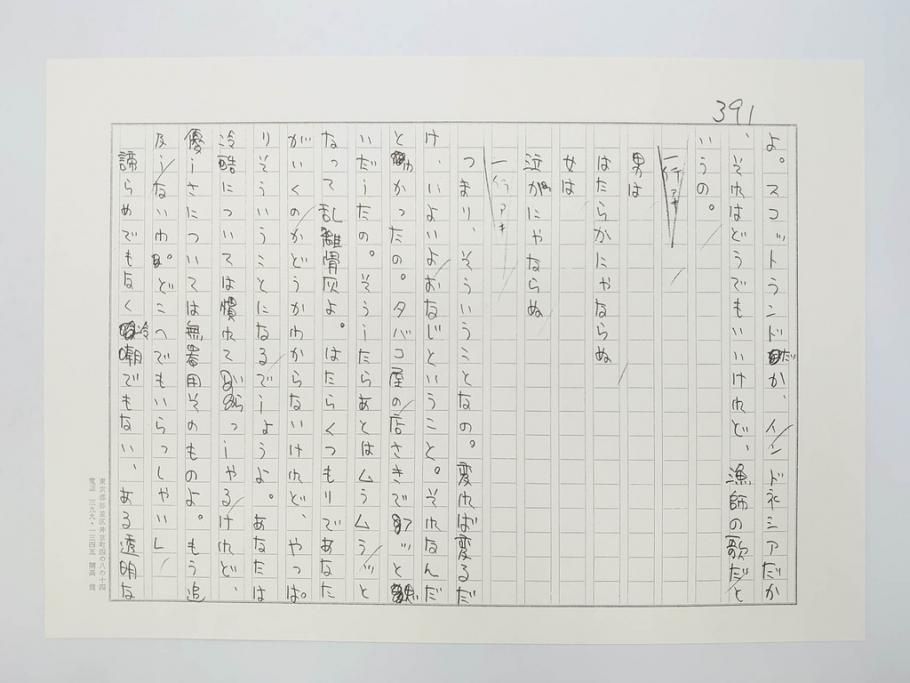 391
よ。スコットランドだか、インドネシアだか
、それはどうでもいいけれど、漁師の歌だと
いうの。
一行アキ
男は
はたらかにゃならぬ
女は
泣かにゃならぬ
一行アキ
つまり、そういうことなの。変れば変るだ
け、いよいよおなじということ。それなんだ
とわかったの。タバコ屋の店さきでフッと
いだしたの。そうしたらあとはムラムラッと
なって乱離骨灰よ。はたらくつもりであなた
がいくのかどうかわからないけれど、やっぱ
りそういうことになるでしょうよ。あなたは
冷酷については慣れてらっしゃるけれど、
優しさについては無器用そのものよ。もう追
及しないわ。どこへでもいらっしゃいし
諦らめでもなく冷嘲でもない、ある透明な
東京都杉並区井草町四の八の十四
電話 三九九・一三四五 開高 健